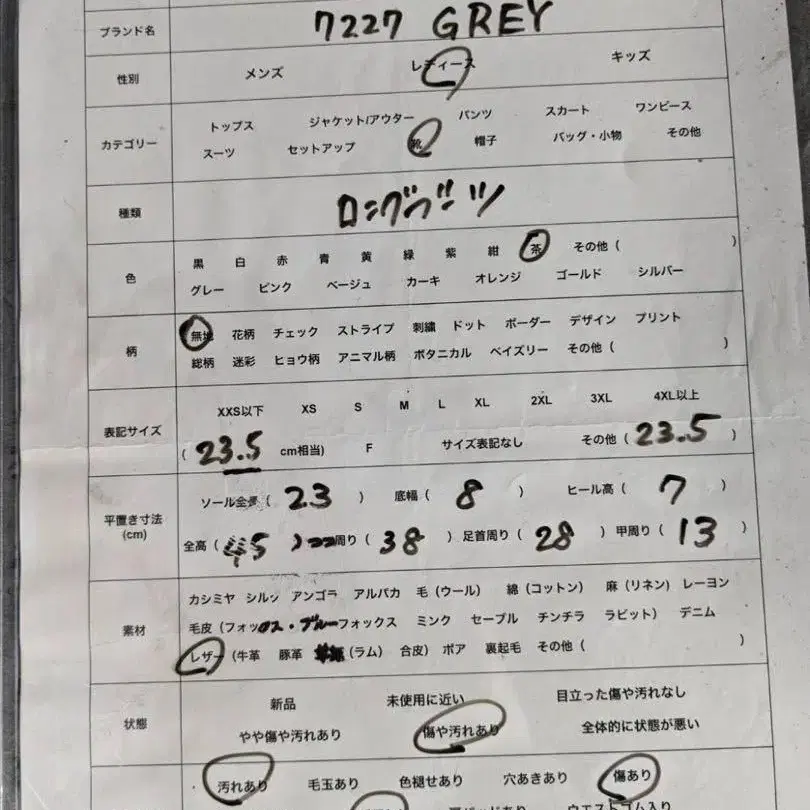 ブランド名 7227 GREY
性別 メンズ レディース キッズ
カテゴリー トップス ジャケット/アウター パンツ スカート ワンピース
スーツ セットアップ 靴 帽子 バッグ・小物 その他
種類 ロングブーツ
色 黒 白 赤 青 黄 緑 紫 紺 茶 その他 ( )
グレー ピンク ベージュ カーキ オレンジ ゴールド シルバー
柄 無地 花柄 チェック ストライプ 刺繍 ドット ボーダー デザイン プリント
総柄 迷彩 ヒョウ柄 アニマル柄 ボタニカル ペイズリー その他 ( )
表記サイズ XXS以下 XS S M L XL 2XL 3XL 4XL以上
( 23.5 cm相当) F サイズ表記なし その他 ( 23.5 )
平置き寸法 (cm) ソール全長 ( 23 ) 底幅 ( 8 ) ヒール高 ( 7 )
全高 ( 45 ) 周り ( 38 ) 足首周り ( 28 ) 甲周り ( 13 )
素材 カシミヤ シルク アンゴラ アルパカ 毛 (ウール) 綿 (コットン) 麻 (リネン) レーヨン
毛皮 (フォックス・ブルーフォックス ミンク セーブル チンチラ ラビット) デニム
レザー (牛革 豚革 (ラム) 合皮) ボア 裏起毛 その他 ( )
状態 新品 未使用に近い 目立った傷や汚れなし
やや傷や汚れあり 傷や汚れあり 全体的に状態が悪い
汚れあり 毛玉あり 色褪せあり 穴あきあり 傷あり